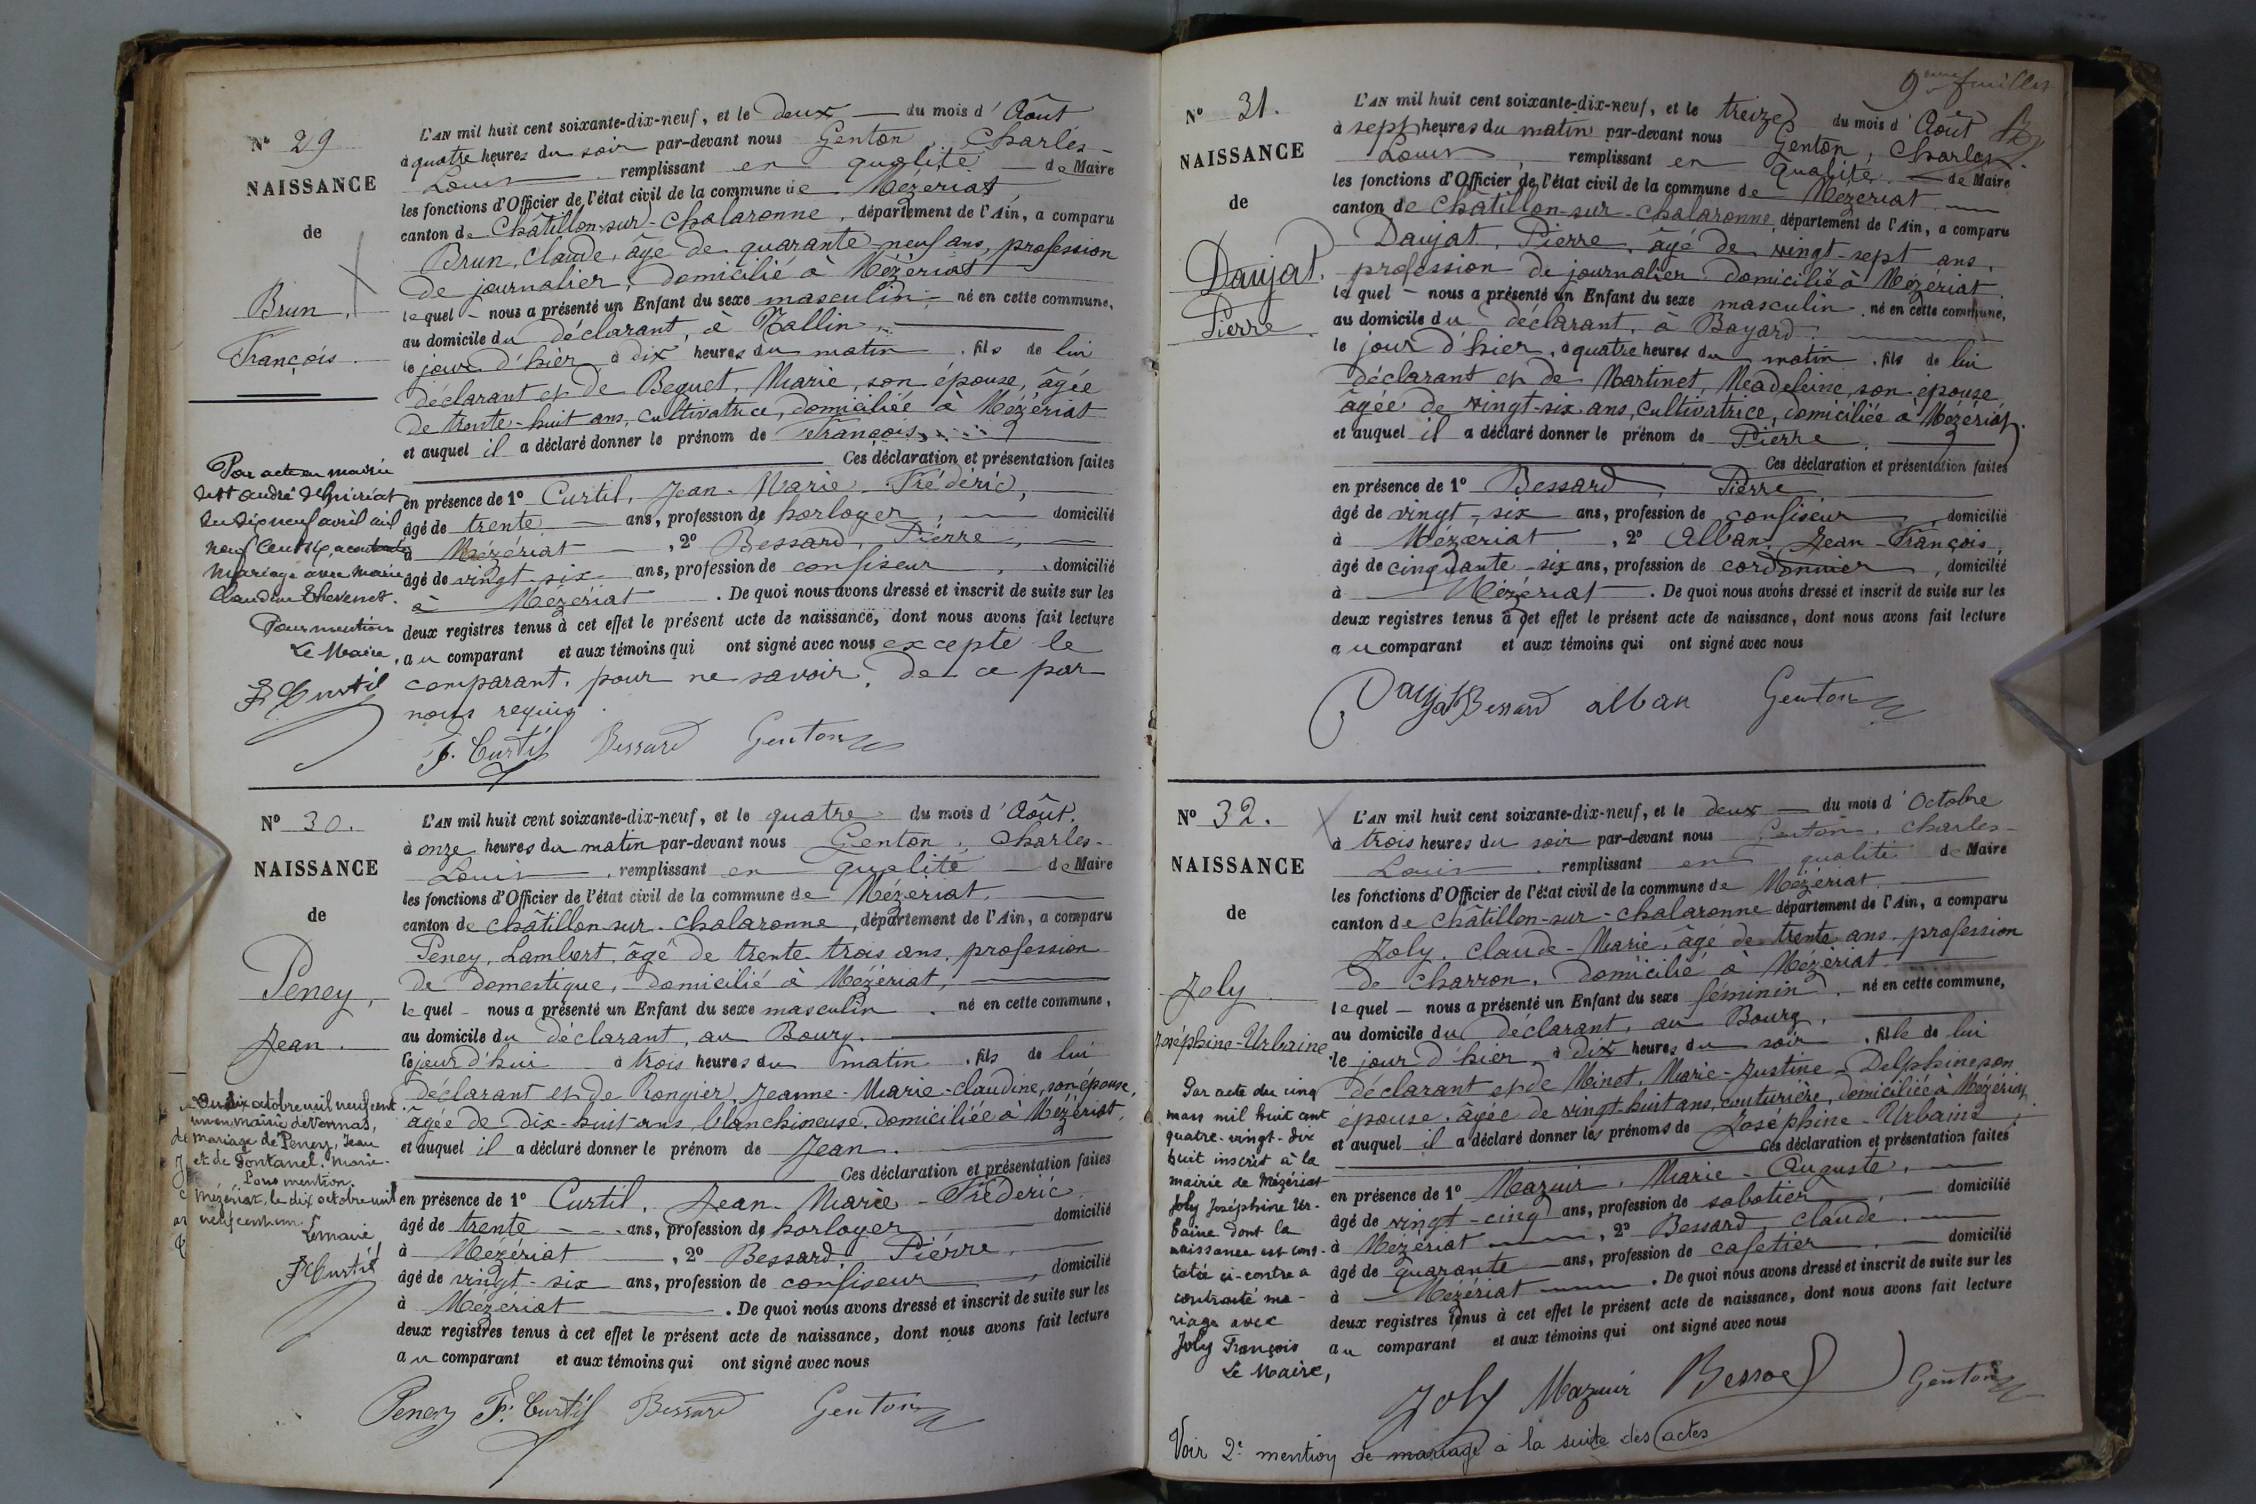 N° 29
NAISSANCE
de
Brun,
François.
L'AN mil huit cent soixante-dix-neuf, et le deux du mois d'Août
à quatre heures du soir par-devant nous Genton, Charles-
Louis remplissant en qualité de Maire
les fonctions d'Officier de l'état civil de la commune de Mézériat
canton de Châtillon-sur-Chalaronne, département de l'Ain, a comparu
Brun, Claude, âgé de quarante-neuf ans, profession
de journalier, domicilié à Mézériat
lequel nous a présenté un Enfant du sexe masculin né en cette commune,
au domicile du déclarant, à Rallin,
le jour d'hier à dix heures du matin, fils de lui
déclarant et de Bequet, Marie, son épouse, âgée
de trente-huit ans, cultivatrice, domiciliée à Mézériat
et auquel il a déclaré donner le prénom de François
Ces déclaration et présentation faites
en présence de 1° Curtil, Jean-Marie-Frédéric,
âgé de trente ans, profession de horloger, domicilié
à Mézériat, 2° Bessard, Pierre,
âgé de vingt-six ans, profession de confiseur, domicilié
à Mézériat. De quoi nous avons dressé et inscrit de suite sur les
deux registres tenus à cet effet le présent acte de naissance, dont nous avons fait lecture
au comparant et aux témoins qui ont signé avec nous excepté le
comparant, pour ne savoir, de ce par
nous requis.
F. Curtil Bessard Genton
Par acte en mairie
de St André d'Huiriat
du dix neuf avril mil
neuf cent six, a contracté
mariage avec Marie
Claudine Thevenet.
Pour mention
Le Maire,
F. Curtil
N° 30.
NAISSANCE
de
Peney,
Jean.
L'AN mil huit cent soixante-dix-neuf, et le quatre du mois d'Août,
à onze heures du matin par-devant nous Genton, Charles-
Louis, remplissant en qualité de Maire
les fonctions d'Officier de l'état civil de la commune de Mézériat,
canton de Châtillon-sur-Chalaronne, département de l'Ain, a comparu
Peney, Lambert, âgé de trente-trois ans, profession
de domestique, domicilié à Mézériat,
lequel nous a présenté un Enfant du sexe masculin, né en cette commune,
au domicile du déclarant, au Bourg.
le jour d'hui à trois heures du matin, fils de lui
déclarant et de Rongier, Jeanne-Marie-Claudine, son épouse,
âgée de dix-huit ans, blanchisseuse, domiciliée à Mézériat,
et auquel il a déclaré donner le prénom de Jean.
Ces déclaration et présentation faites
en présence de 1° Curtil, Jean-Marie-Fréderic
âgé de trente ans, profession de horloger domicilié
à Mézériat, 2° Bessard, Pierre,
âgé de vingt-six ans, profession de confiseur, domicilié
à Mézériat. De quoi nous avons dressé et inscrit de suite sur les
deux registres tenus à cet effet le présent acte de naissance, dont nous avons fait lecture
au comparant et aux témoins qui ont signé avec nous
Peney F. Curtil Bessard Genton
dix octobre mil neuf cent
un en mairie de Vonnas,
mariage de Peney, Jean
et de Fontanel, Marie-
Pour mention.
Mézériat, le dix octobre mil
neuf cent un.
Le Maire,
F. Curtil
9ème feuillet
N° 31.
NAISSANCE
de
Daujat,
Pierre
L'AN mil huit cent soixante-dix-neuf, et le treize du mois d'Août
à sept heures du matin par-devant nous Genton, Charles-
Louis, remplissant en qualité de Maire
les fonctions d'Officier de l'état civil de la commune de Mézériat
canton de Châtillon-sur-Chalaronne, département de l'Ain, a comparu
Daujat, Pierre, âgé de vingt-sept ans,
profession de journalier domicilié à Mézériat
lequel nous a présenté un Enfant du sexe masculin, né en cette commune,
au domicile du déclarant, à Bayard.
le jour d'hier, à quatre heures du matin, fils de lui
déclarant et de Martinet, Madeleine, son épouse
âgée de vingt-six ans, cultivatrice, domiciliée à Mézériat,
et auquel il a déclaré donner le prénom de Pierre.
Ces déclaration et présentation faites
en présence de 1° Bessard, Pierre
âgé de vingt-six ans, profession de confiseur, domicilié
à Mézériat, 2° Alban, Jean-François,
âgé de cinquante-six ans, profession de cordonnier, domicilié
à Mézériat. De quoi nous avons dressé et inscrit de suite sur les
deux registres tenus à cet effet le présent acte de naissance, dont nous avons fait lecture
au comparant et aux témoins qui ont signé avec nous
Daujat Bessard alban Genton
N° 32.
NAISSANCE
de
Joly
Joséphine-Urbaine
L'AN mil huit cent soixante-dix-neuf, et le deux du mois d'Octobre
à trois heures du soir par-devant nous Genton, Charles-
Louis, remplissant en qualité de Maire
les fonctions d'Officier de l'état civil de la commune de Mézériat
canton de Châtillon-sur-Chalaronne département de l'Ain, a comparu
Joly, Claude-Marie, âgé de trente ans, profession
de charron, domicilié à Mézériat
lequel nous a présenté un Enfant du sexe féminin, né en cette commune,
au domicile du déclarant, au Bourg,
le jour d'hier, à dix heures du soir, fille de lui
déclarant et de Minot, Marie-Justine-Delphine, son
épouse, âgée de vingt-huit ans, couturière, domiciliée à Mézériat
et auquel il a déclaré donner les prénoms de Joséphine-Urbaine
Ces déclaration et présentation faites
en présence de 1° Mazuir, Marie-Auguste,
âgé de vingt-cinq ans, profession de sabotier, domicilié
à Mézériat, 2° Bessard, Claude,
âgé de quarante ans, profession de cafetier, domicilié
à Mézériat. De quoi nous avons dressé et inscrit de suite sur les
deux registres tenus à cet effet le présent acte de naissance, dont nous avons fait lecture
au comparant et aux témoins qui ont signé avec nous
Joly Mazuir Bessard Genton
Par acte du cinq
mars mil huit cent
quatre-vingt-dix
huit inscrit à la
mairie de Mézériat
Joly Joséphine Ur-
baine dont la
naissance est cons-
tatée ci-contre a
contracté ma-
riage avec
Joly François
Le Maire,
Voir 2e mention de mariage à la suite des actes